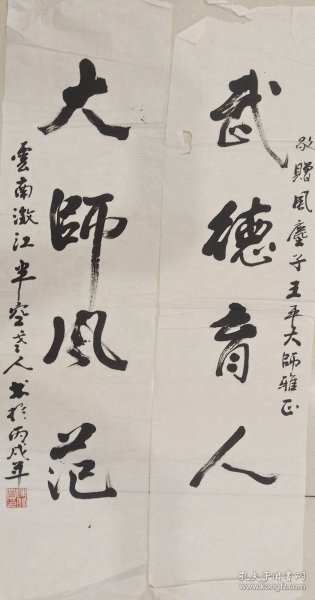 敬贈風塵子王平大師雅正
武德育人
大師风范
雲南澂江半空老人书於丙戌年
孔夫子旧书网